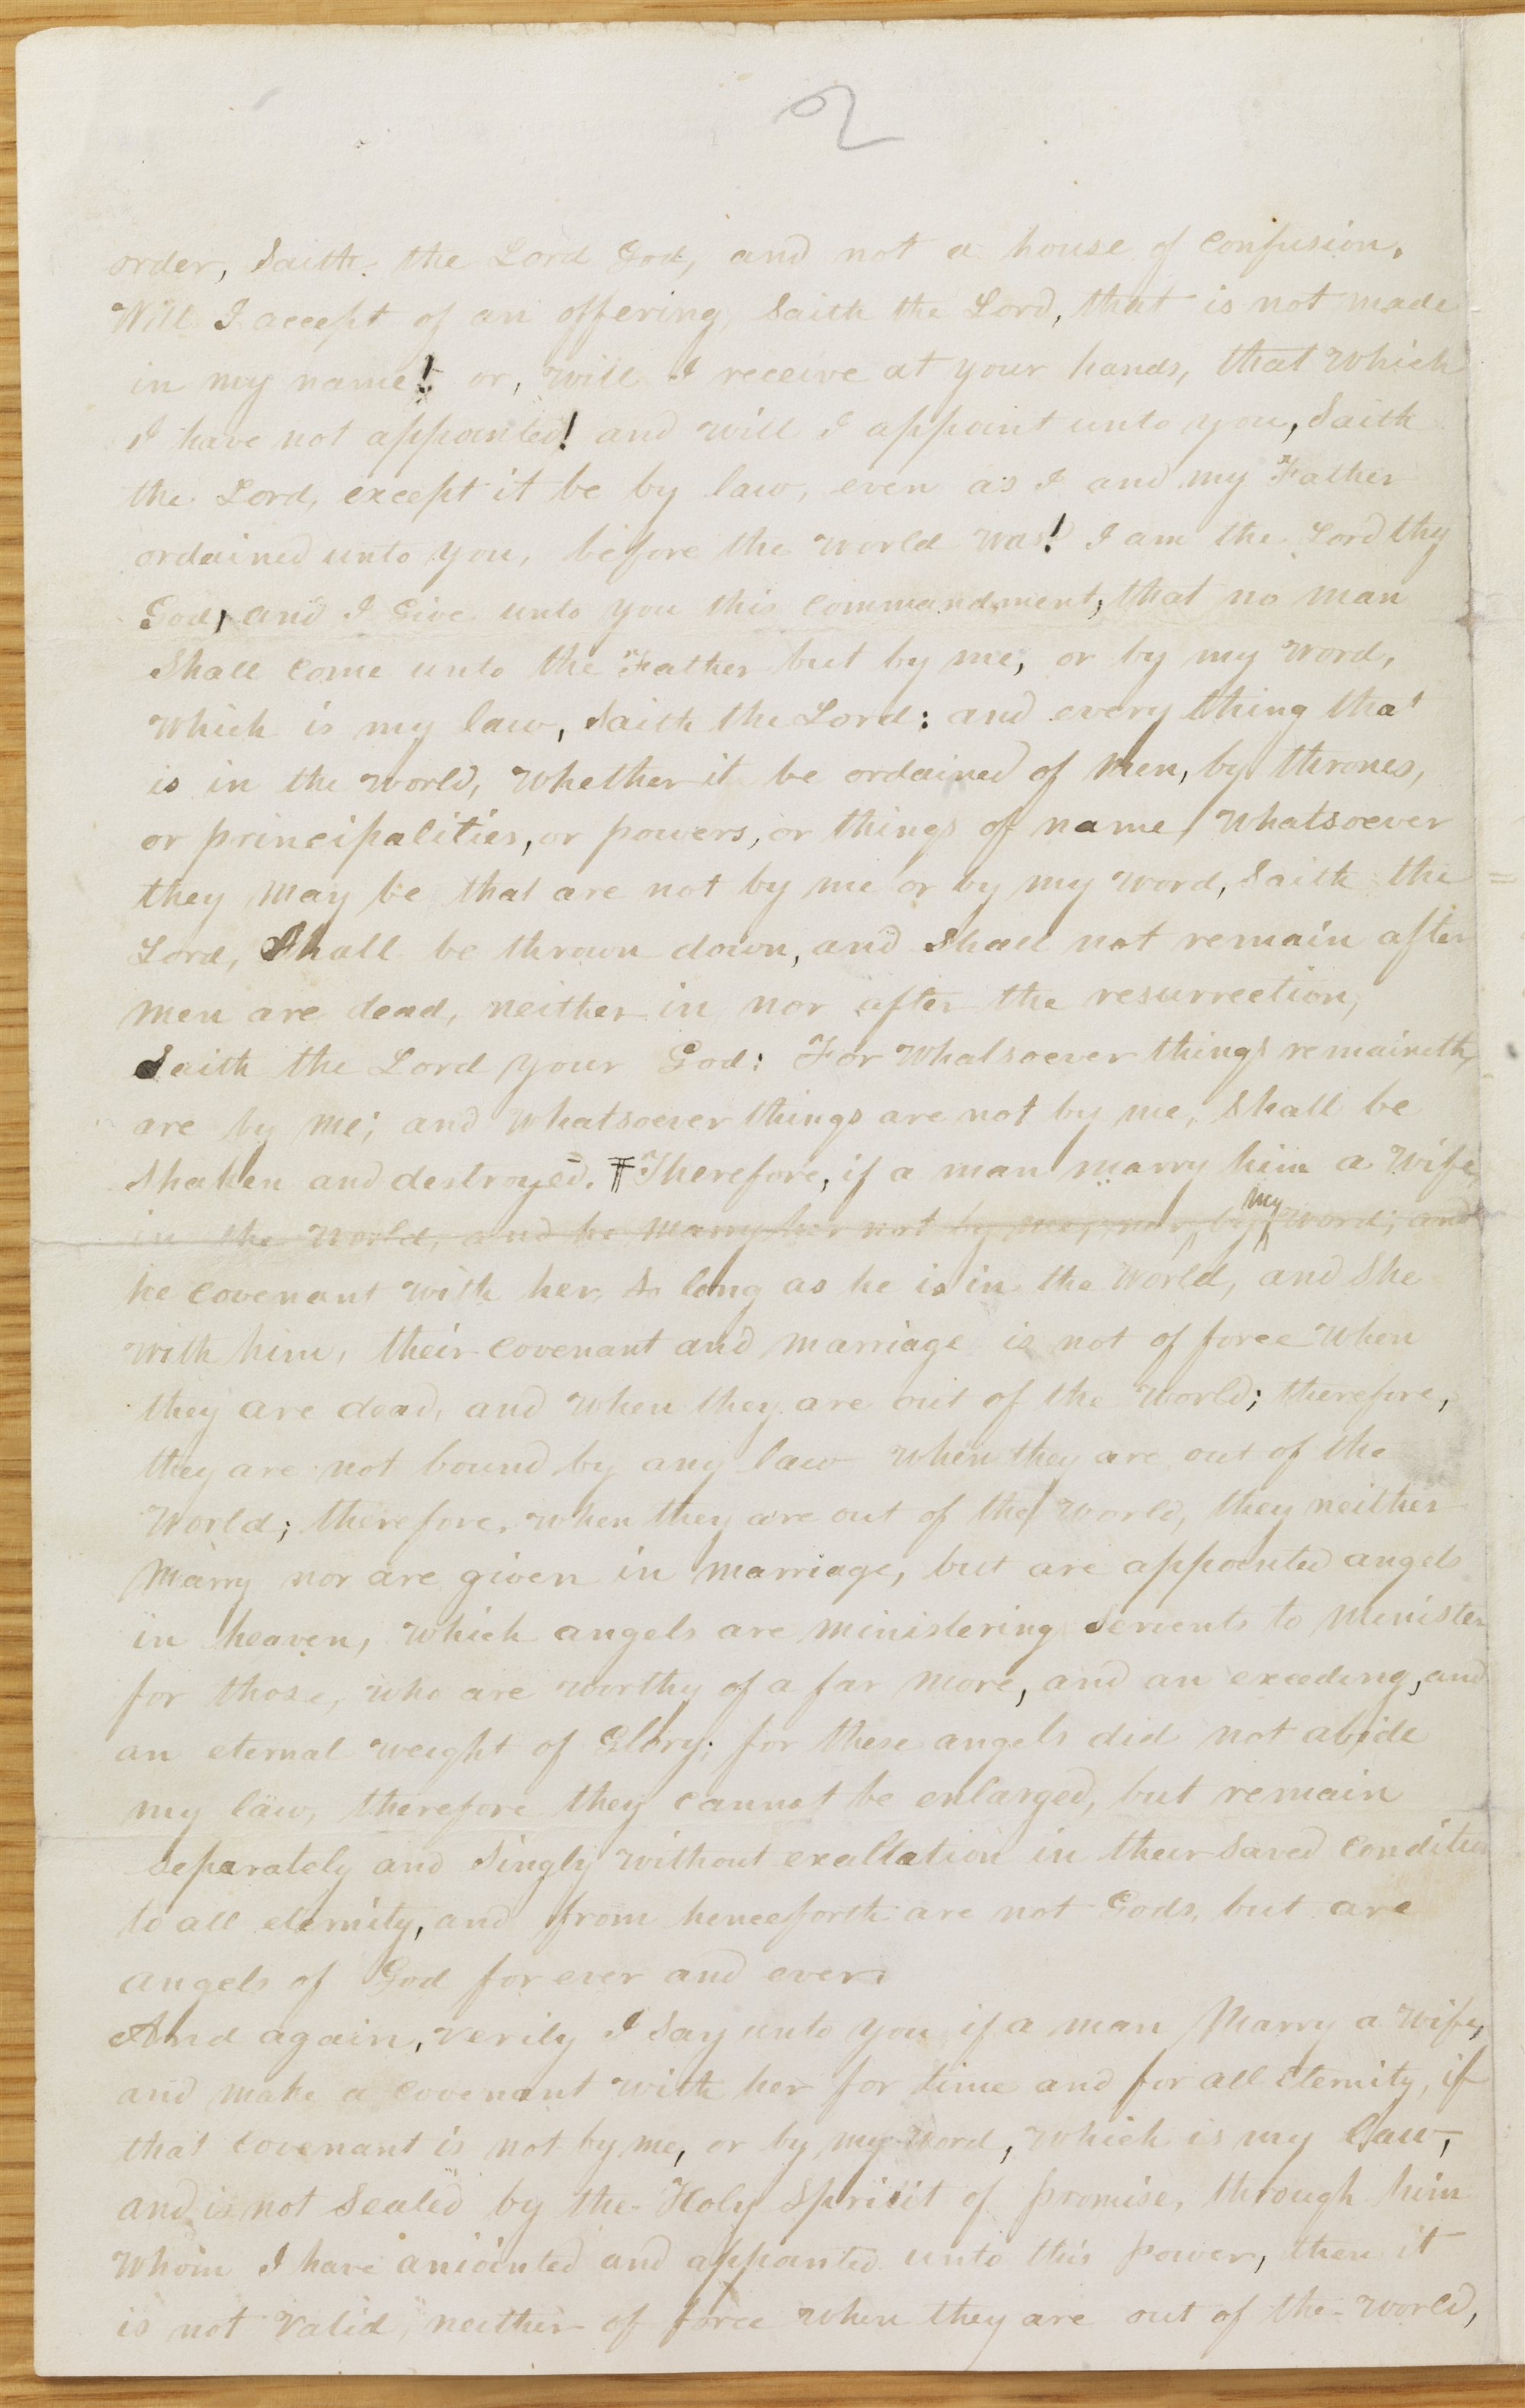 2
order, Saith the Lord God, and not a house of Confusion.
Will I accept of an offering, Saith the Lord, that is not made
in my name! or, will I receive at your hands, that which
I have not appointed! and will I appoint unto you, Saith
the Lord, except it be by law, even as I and my Father
ordained unto you, before the world was! I am the Lord thy
God, and I Give unto you this Commandment, that no man
Shall Come unto the Father but by me, or by my word,
which is my law, Saith the Lord: and every thing that
is in the world, whether it be ordained of men, by thrones,
or principalities, or powers, or things of name, whatsoever
they may be that are not by me or by my word, Saith the
Lord, Shall be thrown down, and Shall not remain after
men are dead, neither in nor after the resurrection,
Saith the Lord your God: For whatsoever things remaineth,
are by me; and whatsoever things are not by me, Shall be
Shaken and destroyed. Therefore, if a man marry him a wife
in the world, and he marry her not by me, nor by my word; and
he Covenant with her, So long as he is in the world, and She
with him, their Covenant and marriage is not of force when
they are dead, and when they are out of the world; therefore,
they are not bound by any law when they are out of the
world; therefore, when they are out of the world, they neither
marry nor are given in marriage, but are appointed angels
in heaven, which angels are ministering Servents to minister
for those, who are worthy of a far more, and an exceding, and
an eternal weight of Glory; for these angels did not abide
my law, therefore they Cannot be enlarged, but remain
Separately and Singly without exaltation in their Saved Condition
to all eternity, and from henceforth are not Gods, but are
angels of God for ever and ever.
And again, verily I Say unto you, if a man marry a wife,
and make a Covenant with her for time and for all Eternity, if
that Covenant is not by me, or by my word, which is my law,
and is not Sealed by the Holy Spriiit of promise, through him
whom I have aniointed and appointed unto this power, then it
is not valid, neither of force when they are out of the world,